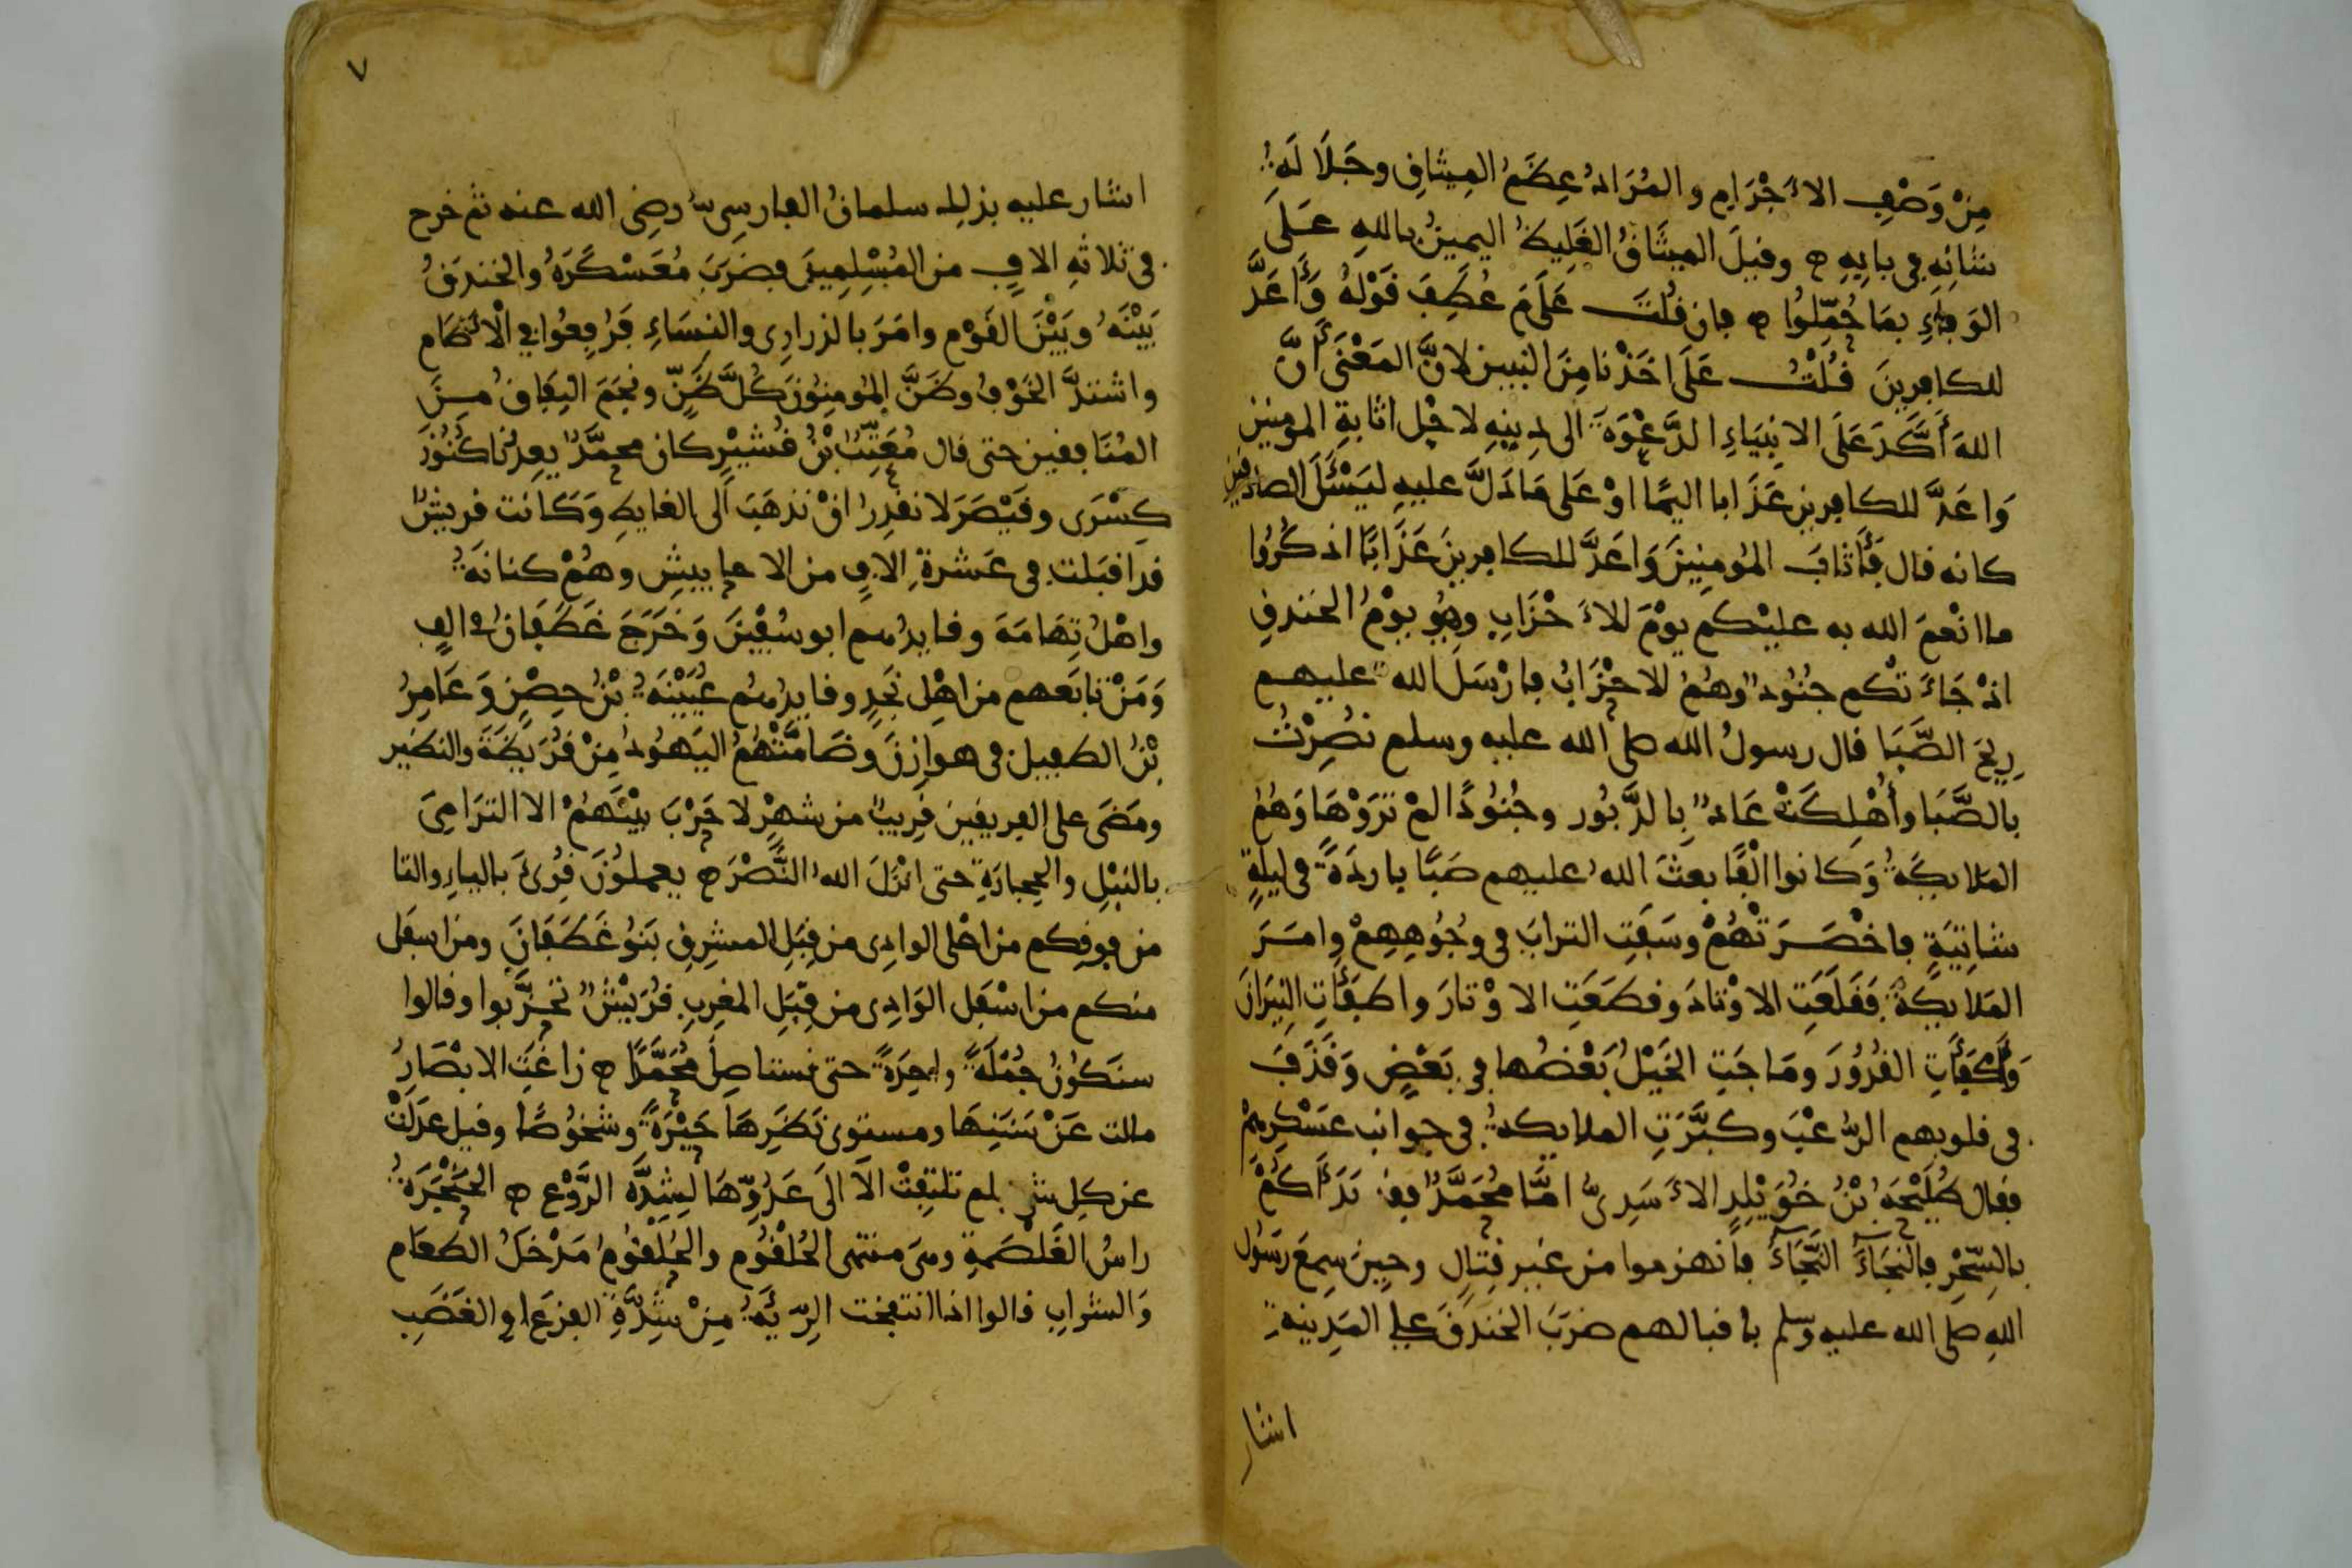 مِنْ وَصْفِ الأَجْرَامِ والمُرَادُ عِظَمُ المِيثَاقِ وجَلَالَةُ
شَانِهِ في بابِهِ ه وقيلَ الميثَاقُ الغَلِيظُ اليمينُ باللهِ عَلَى
الوَفاءِ بمَا حُمِّلُوا ه فان قُلْتَ عَلَامَ عُطِفَ قَوْلُهُ وَأَعَدَّ
للكافِرينَ قُلْتُ عَلَى اخَذْنا مِنَ النبيين لانَّ المَعْنَى أَنَّ
اللهَ أَكَّدَ عَلَى الانبِيَاءِ الدَّعْوَةَ الى دِينِهِ لاجْلِ اثابةِ المومنين
وَاعَدَّ للكافرين عَذَابا اليمًا اوْ عَلى مَا دَلَّ عليهِ ليَسْئَلَ الصادقين
كانه قال فَأَثابَ المُومِنِينَ وَاعَدَّ للكافرينَ عَذَابًا اذكُرُوا
ما انْعَمَ الله به عليْكم يوْمَ الأَحْزَابِ وهُو يوْمُ الخندقِ
اذْ جَاءَتْكم جنُودٌ وهُمُ الاحْزَابُ فارْسَلَ الله عليهم
رِيحَ الصَّبَا قال رسولُ الله صلى الله عليه وسلم نُصِرْتُ
بالصَّبَا وأُهْلِكَتْ عَادٌ بِالدَّبُور وجُنُودًا لمْ تَرَوْهَا وَهُمُ
المَلايكَةُ وَكانوا الْفًا بعثَ اللهُ عليهم صَبًا باردَةً في ليلةٍ
شاتِيَةٍ فاخْصَرَتْهُمْ وسَفَتِ الترابَ في وجُوهِهِمْ وامَرَ
المَلايكةَ فقَلَعَتِ الاوْتادَ وقطَعَتِ الاوْتارَ واطفَأَتِ النِيرَانَ
وَأَكْفَأَتِ القُدُورَ ومَاجَتِ الخَيْلُ بَعْضُها في بَعْضٍ وَقَذَفَ
في قلوبهم الرُّعْبَ وكبَّرَتِ الملايكةُ في جوانب عَسْكَرِهِمْ
فقال طُلَيْحَةُ بْنُ خُوَيْلِدٍ الأَسَدِىُّ امَّا مُحَمَّدٌ فقد بَدَأَكُمْ
بالسِّحْرِ فالنَجَاءَ النَّجَاءَ فانهزموا من غير قِتالٍ وحين سمِعَ رسُول
اللهِ صلى الله عليه وسلم باقبالهم ضرَبَ الخندَقَ على المَدِينةِ
اشار
٧
اشار عليه بذلك سلمانُ الفارسِىُّ رضِى الله عنه ثم خرج
في ثلاثةِ الافٍ من المُسْلِمِينَ فضرَبَ مُعَسْكَرَهُ والخندَقُ
بَيْنَهُ وبَيْنَ القَوْم وامَرَ بالذرارِى والنسَاءِ فَرُفِعُوا في الأَطَام
واشتدَّ الخَوْفُ وظَنَّ المُومِنُونَ كُلَّ ظَنٍّ ونجَمَ النِفَاقُ مِنَ
المُنَافِقِين حتى قال مُعَتِّبُ بْنُ قُشَيْرٍ كان محمَّدٌ يعِدُنا كُنُوزَ
كِسْرَى وقَيْصَرَ لا نقدِرُ انْ نذهَبَ الى الغايطِ وَكانت قريشٌ
قد اقبَلت في عَشرةِ الافٍ من الاحابيشِ وهُمْ كنانَةُ
واهْلُ تِهَامَةَ وقايدُهم ابو سُفْينَ وَخَرَجَ غَطَفَانُ في الفٍ
وَمَنْ تابَعهم من اهْلِ نَجْدٍ وقايدُهم عُيَيْنَةُ بْنُ حِصْنٍ وَعَامِرُ
بْنُ الطفيل في هوازِنَ وضَامَّتْهُمُ اليَهُودُ مِنْ قُرَيظَةَ والنضير
ومَضَى على الفريقين قرِيبٌ من شهْرٍ لا حَرْبَ بيْنَهُمْ الا الترَامِىَ
بالنبْلِ والحِجارَةِ حتى انْزَلَ اللهُ النَّصْرَ ه يعملُونَ قُرِئَ باليَاءِ والتا
من فوقِكم من اعْلى الوادِى من قِبَلِ المشرِقِ بَنُو غَطَفَانَ ومن اسفَل
منكم من اسْفَلِ الوَادِى من قِبَلِ المغرِبِ قُرَيْشٌ تحَزَّبوا وقالوا
سنَكُونُ جُمْلَةً واحِدَةً حتى نستاصِلَ مُحَمَّدًا ه زاغَتِ الابْصَارُ
مالت عَنْ سَنَنِهَا ومستوى نَظَرِهَا حَيْرَةً وشخُوصًا وقيل عدَلَتْ
عن كل شىءٍ فلم تلتفِتْ الا الَى عَدُوِّهَا لِشِدَّةِ الرَّوْعِ ه الحَنْجَرَةُ
راسُ الغَلْصَمةِ وهى منتهى الحُلقُومِ والحُلْقُومُ مَدْخَلُ الطعَامِ
وَالشرابِ قالوا اذا انتفخت الرِّيَةُ مِنْ شِدَّةِ الفزعِ او الغَضَبِ